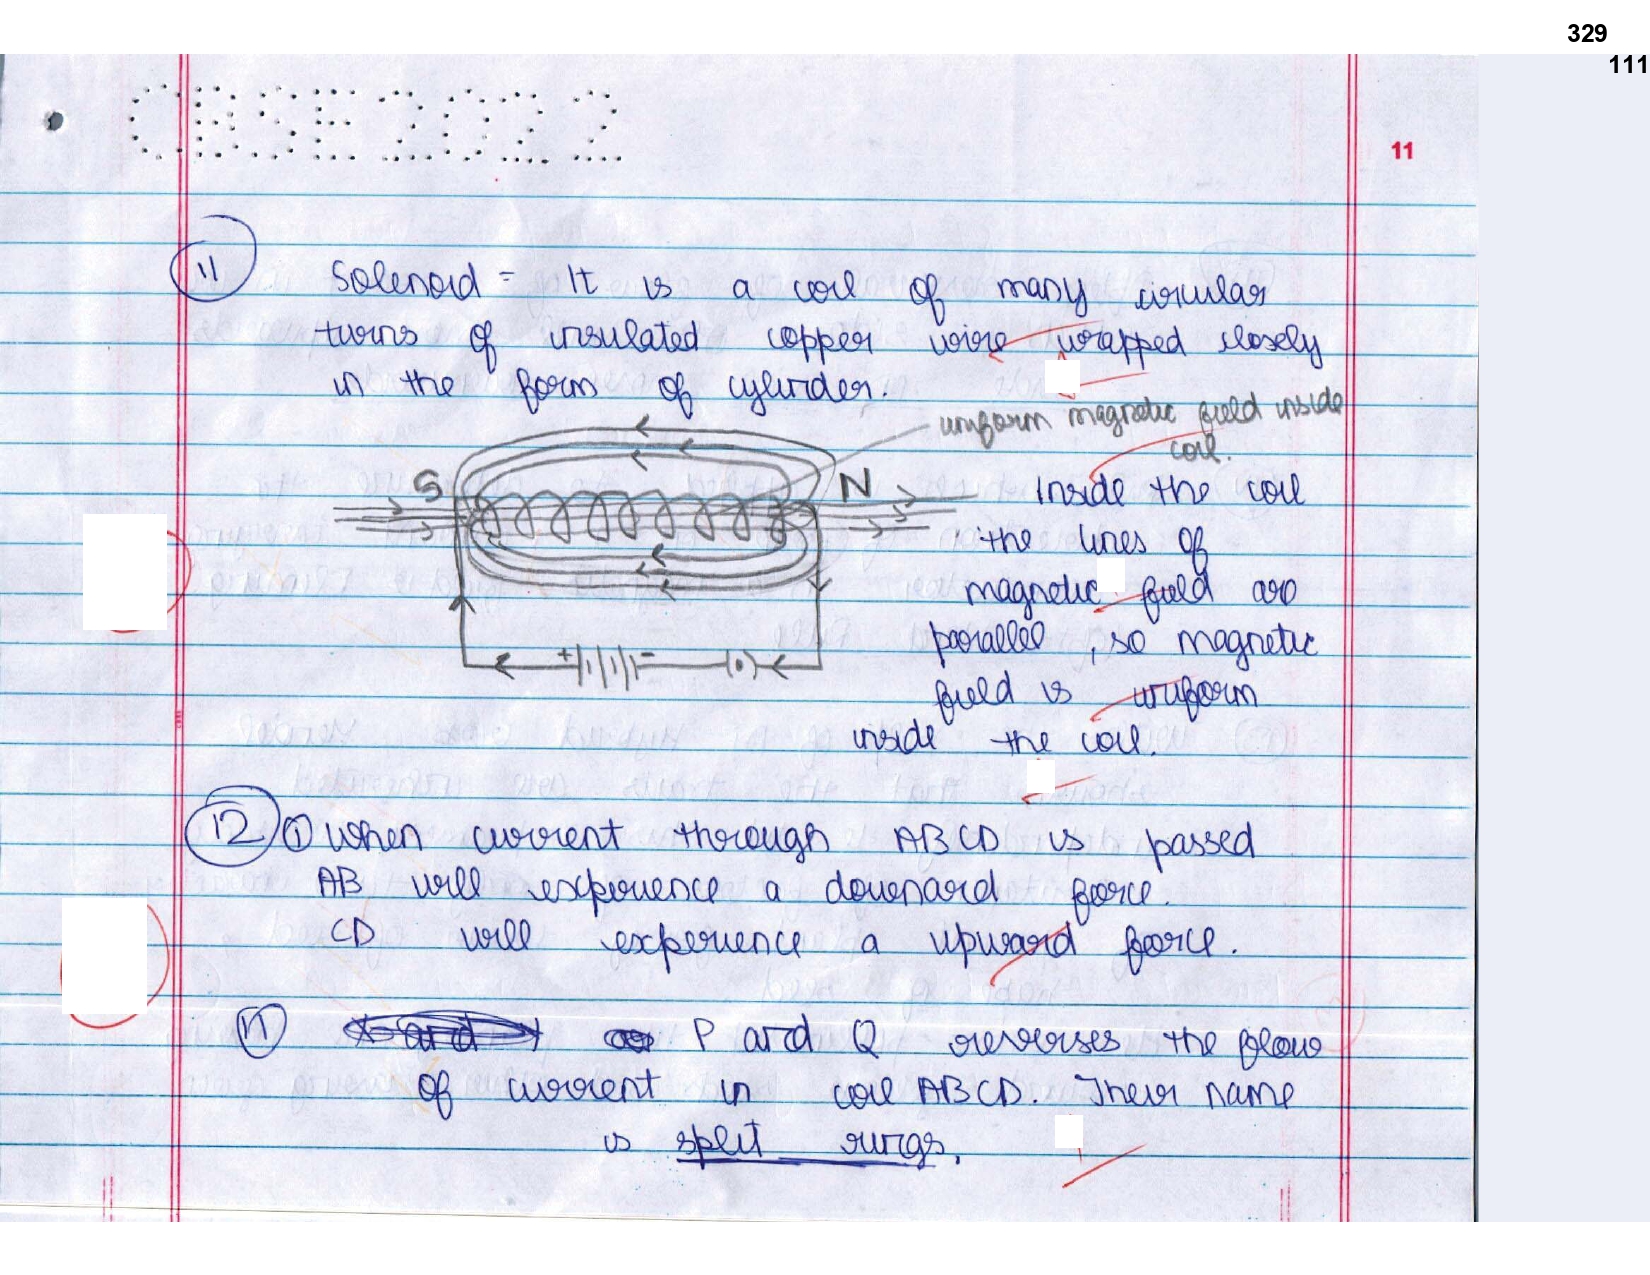 329
111
CBSE2022
11
11 Solenoid = It is a coil of many circular
turns of insulated copper wire wrapped closely
in the form of cylinder.
uniform magnetic field inside
coil.
S N
Inside the coil
the lines of
magnetic field are
parallel, so magnetic
field is uniform
inside the coil.
+ -
(.)
12 (i) When current through ABCD is passed
AB will experience a downard force.
CD will experience a upward force.
(ii) P and Q reverses the flow
of current in coil ABCD. Their name
is split rings.